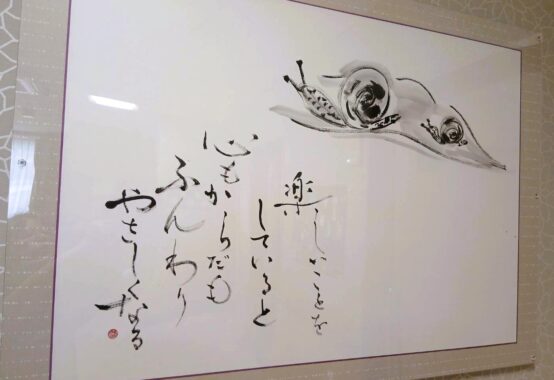 楽しいことを
していると
心もからだも
ふんわり
やさしくなる